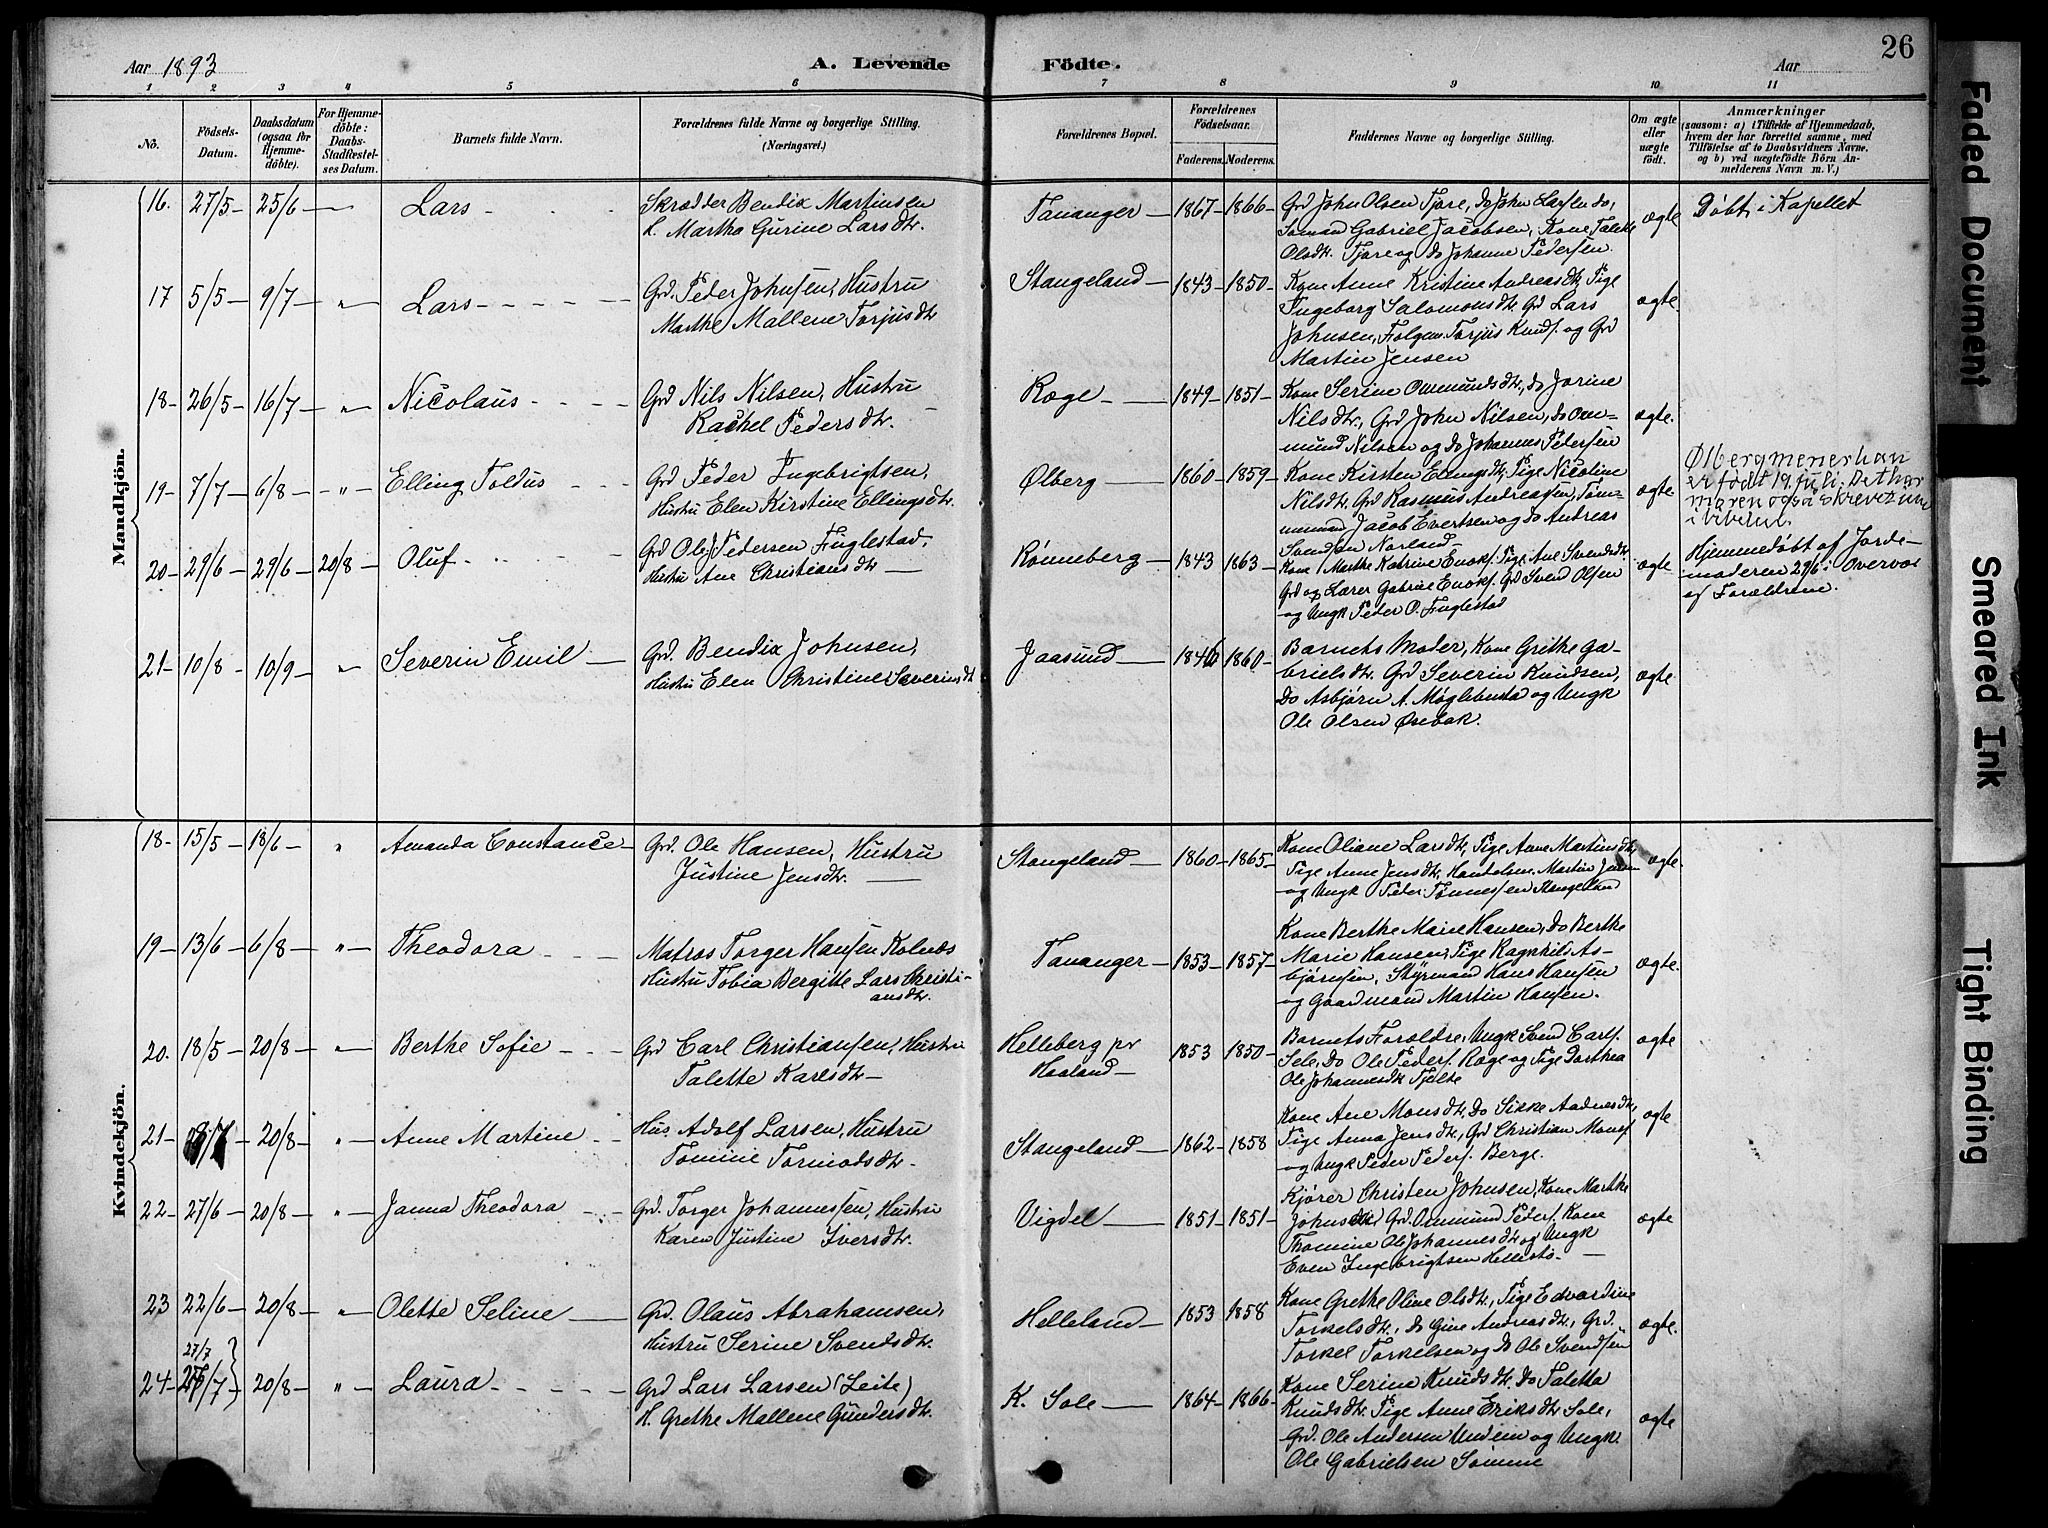 Aar 1893
A. Levende Födte.
Aar
26
1 2 3 4 5 6 7 8 9 10 11
No.
Födsels-Datum.
Daabsdatum (ogsaa for Hjemme-döbte).
For Hjemme-döbte: Daabs-Stadfæstel-ses Datum.
Barnets fulde Navn.
Forældrenes fulde Navne og borgerlige Stilling.
(Næringsvei.)
Forældrenes Bopæl.
Forældrenes Födselsaar.
Faderens. Moderens.
Faddernes Navne og borgerlige Stilling.
Om ægte eller uægte födt.
Anmærkninger
(saasom: a) i Tilfælde af Hjemmedaab,
hvem der har forrettet samme, med
Tilföielse af to Daabsvidners Navne,
og b) ved uægtefödte Börn An-
melderens Navn m. V.)
Mandkjön.
16. 27/5 – 25/6 – Lars
Skrædder Bendix Martinsen
H. Martha Gurine Larsdtr.
Tananger – 1867 – 1866 –
Grd John Olsen Tjore, do John Larsen do,
Sømand Gabriel Jacobsen, Kone Talette
Olsdtr. Tjore og do Johanne Pedersen
ægte
Døbt i Kapellet
17 5/5 – 9/7 – " – Lars
Grd. Peder Johnsen, Hustru
Marthe Mallene Torjusdtr
Stangeland – 1843 – 1850 –
Kone Anne Kristine Andreasdtr, Pige
Ingeborg Salomonsdtr. Grd Lars
Johnsen, Torjus Knuds. og Grd
Martin Jensen
ægte
18 – 26/5 – 16/7 – " – Nicolaus
Grd Nils Nilsen, Hustru
Rachel Pedersdtr.
Ræge – 1849 – 1851 –
Kone Serine Ommundsdtr, do Jorine
Nilsdtr., Grd John Nilsen, do Om-
mund Nilsen og do Johannes Pedersen
ægte.
19 – 7/7 – 6/8 – " – Elling Toldus
Grd Peder Ingebrigtsen,
Hustru Elen Kirstine Ellingsdtr.
Ølberg – 1860 – 1859 –
Kone Kirsten Ellingsdtr, Pige Nicoline
Nilsdtr, Grd Rasmus Andreassen, Tøm-
mermand Jacob Evertsen og do Andreas
Svendsen Norland –
ægte
Ølberg mener han
er født 19. juli. Det har
moren også skrevet inn
i bibelen.
20 – 29/6 – 29/6 – 20/8 – Oluf
Grd Ole Pedersen Fuglestad,
Hustru Ane Christiansdtr –
Rønneberg – 1843 – 1863 –
Kone Marthe Katrine Enoks. Pige Ane Svendsdtr
Grd og Lærer Gabriel Enoks. Grd Svend Olsen
og Ungk Peder O. Fuglestad
ægte
Hjemmedøbt af Jorde-
moderen 29/6 i Overvær
af Forældrene.
21 – 10/8 – 10/9 – " Severin Emil –
Grd. Bendix Johnsen,
Hustru Elen Christine Severinsdtr
Jaasund – 1846 1860 –
Barnets Moder, Kone Grethe Ga-
brielsdtr. Grd Severin Knudsen,
Do Asbjørn A. Møglebusta og Ungk
Ole Olsen Ørebæk.
ægte
Kvindekjön.
18 – 15/5 – 18/6 – " Amanda Constance –
Grd. Ole Hansen, Hustru
Justine Jensdtr. –
Stangeland – 1860 – 1865 –
Kone Oliane Larsdtr, Pige Anne Martinsdtr,
Pige Anne Jensdtr, Handelsm. Martin Jensen
og Ungk Peder Tønnessen Stangeland
ægte.
19 – 13/6 – 6/8 – " – Theodora
Matros Torger Hansen Kolnæs
Hustru Tobia Bergitte Lars Christi-
ansdtr.
Tananger – 1853 – 1857 –
Kone Berthe Marie Hansen, Do Berthe
Marie Hansen, Pige Ragnhild As-
bjørnsen, Styrmand Hans Hansen
og Gaardmand Martin Hansen.
ægte.
20. 18/5 – 20/8 – " – Berthe Sofie
Grd Carl Christiansen, Hustru
Talette Karlsdtr –
Helleberg pr
Haaland –
1853 1850 –
Barnets Forældre, Ungk Svend Carls.
Sele, Do Ole Peders. Ræge og Pige Dorthea
Ole Johannesdtr Tjelte
ægte
21 – 8/7 – 20/8 – " – Anne Martine
Hus. Adolf Larsen, Hustru
Tomine Tormodsdtr.
Stangeland – 1862 – 1858
Kone Ane Monsdtr, Do Sikke Aadnesdtr,
Pige Anna Jensdtr, Grd Christian Mons.
og Ungk Peder Peders. Berge.
ægte
22 – 27/6 – 20/8 – " – Janna Theodora
Grd. Torger Johannessen, Hustru
Karen Justine Iversdtr.
Vigdel – 1851 – 1851 –
Kjører Christen Johnsen, Kone Marthe
Johnsdtr Grd Ommund Peders. Kone
Thomine Ole Johannesdtr og Ungk
Even Ingebrigtsen Hellestø. –
ægte
23 22/6 – 20/8 – " – Olette Seline –
Grd. Olaus Abrahamsen,
Hustru Serine Svendsdtr.
Helleland – 1853 1858
Kone Grethe Oline Olsdtr., Pige Edvardine
Torkelsdtr., Do Gine Andreasdtr, Grd.
Torkel Torkelsen og do Ole Svendsen
ægte.
27/7
24 – 25/7 – 20/8 – " – Laura
Grd Lars Larsen (Leite)
H. Grethe Mallene Gundersdtr.
K. Sole – 1864 – 1866 –
Kone Serine Knudsdtr. Do Taletta
Knudsdtr. Pige Anne Eriksdtr Sole,
Grd. Ole Andersen Undeim og Ungk.
Ole Gabrielsen Sømme
ægte
Faded Document
Smeared Ink
Tight Binding